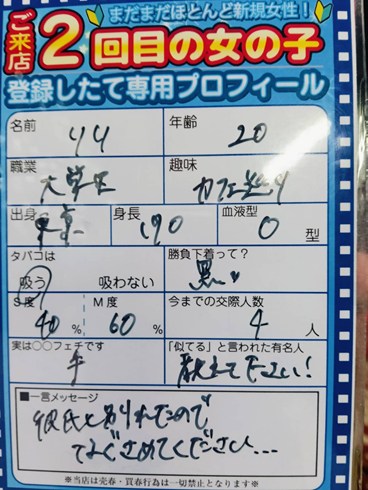 まだまだほとんど新規女性！
ご来店2回目の女の子
登録したて専用プロフィール
名前 リリ 年齢 20
職業 大学生 趣味 カフェ巡り
出身 東京 身長 170 血液型 O 型
タバコは 吸う 吸わない 勝負下着って？ 黒♡
S度 40 % M度 60 % 今までの交際人数 4 人
実は○○フェチです 手 「似てる」と言われた有名人 教えて下さい！
■一言メッセージ
彼氏と別れたので
てなぐさめてください…
※当店は売春・買春行為は一切禁止となります※